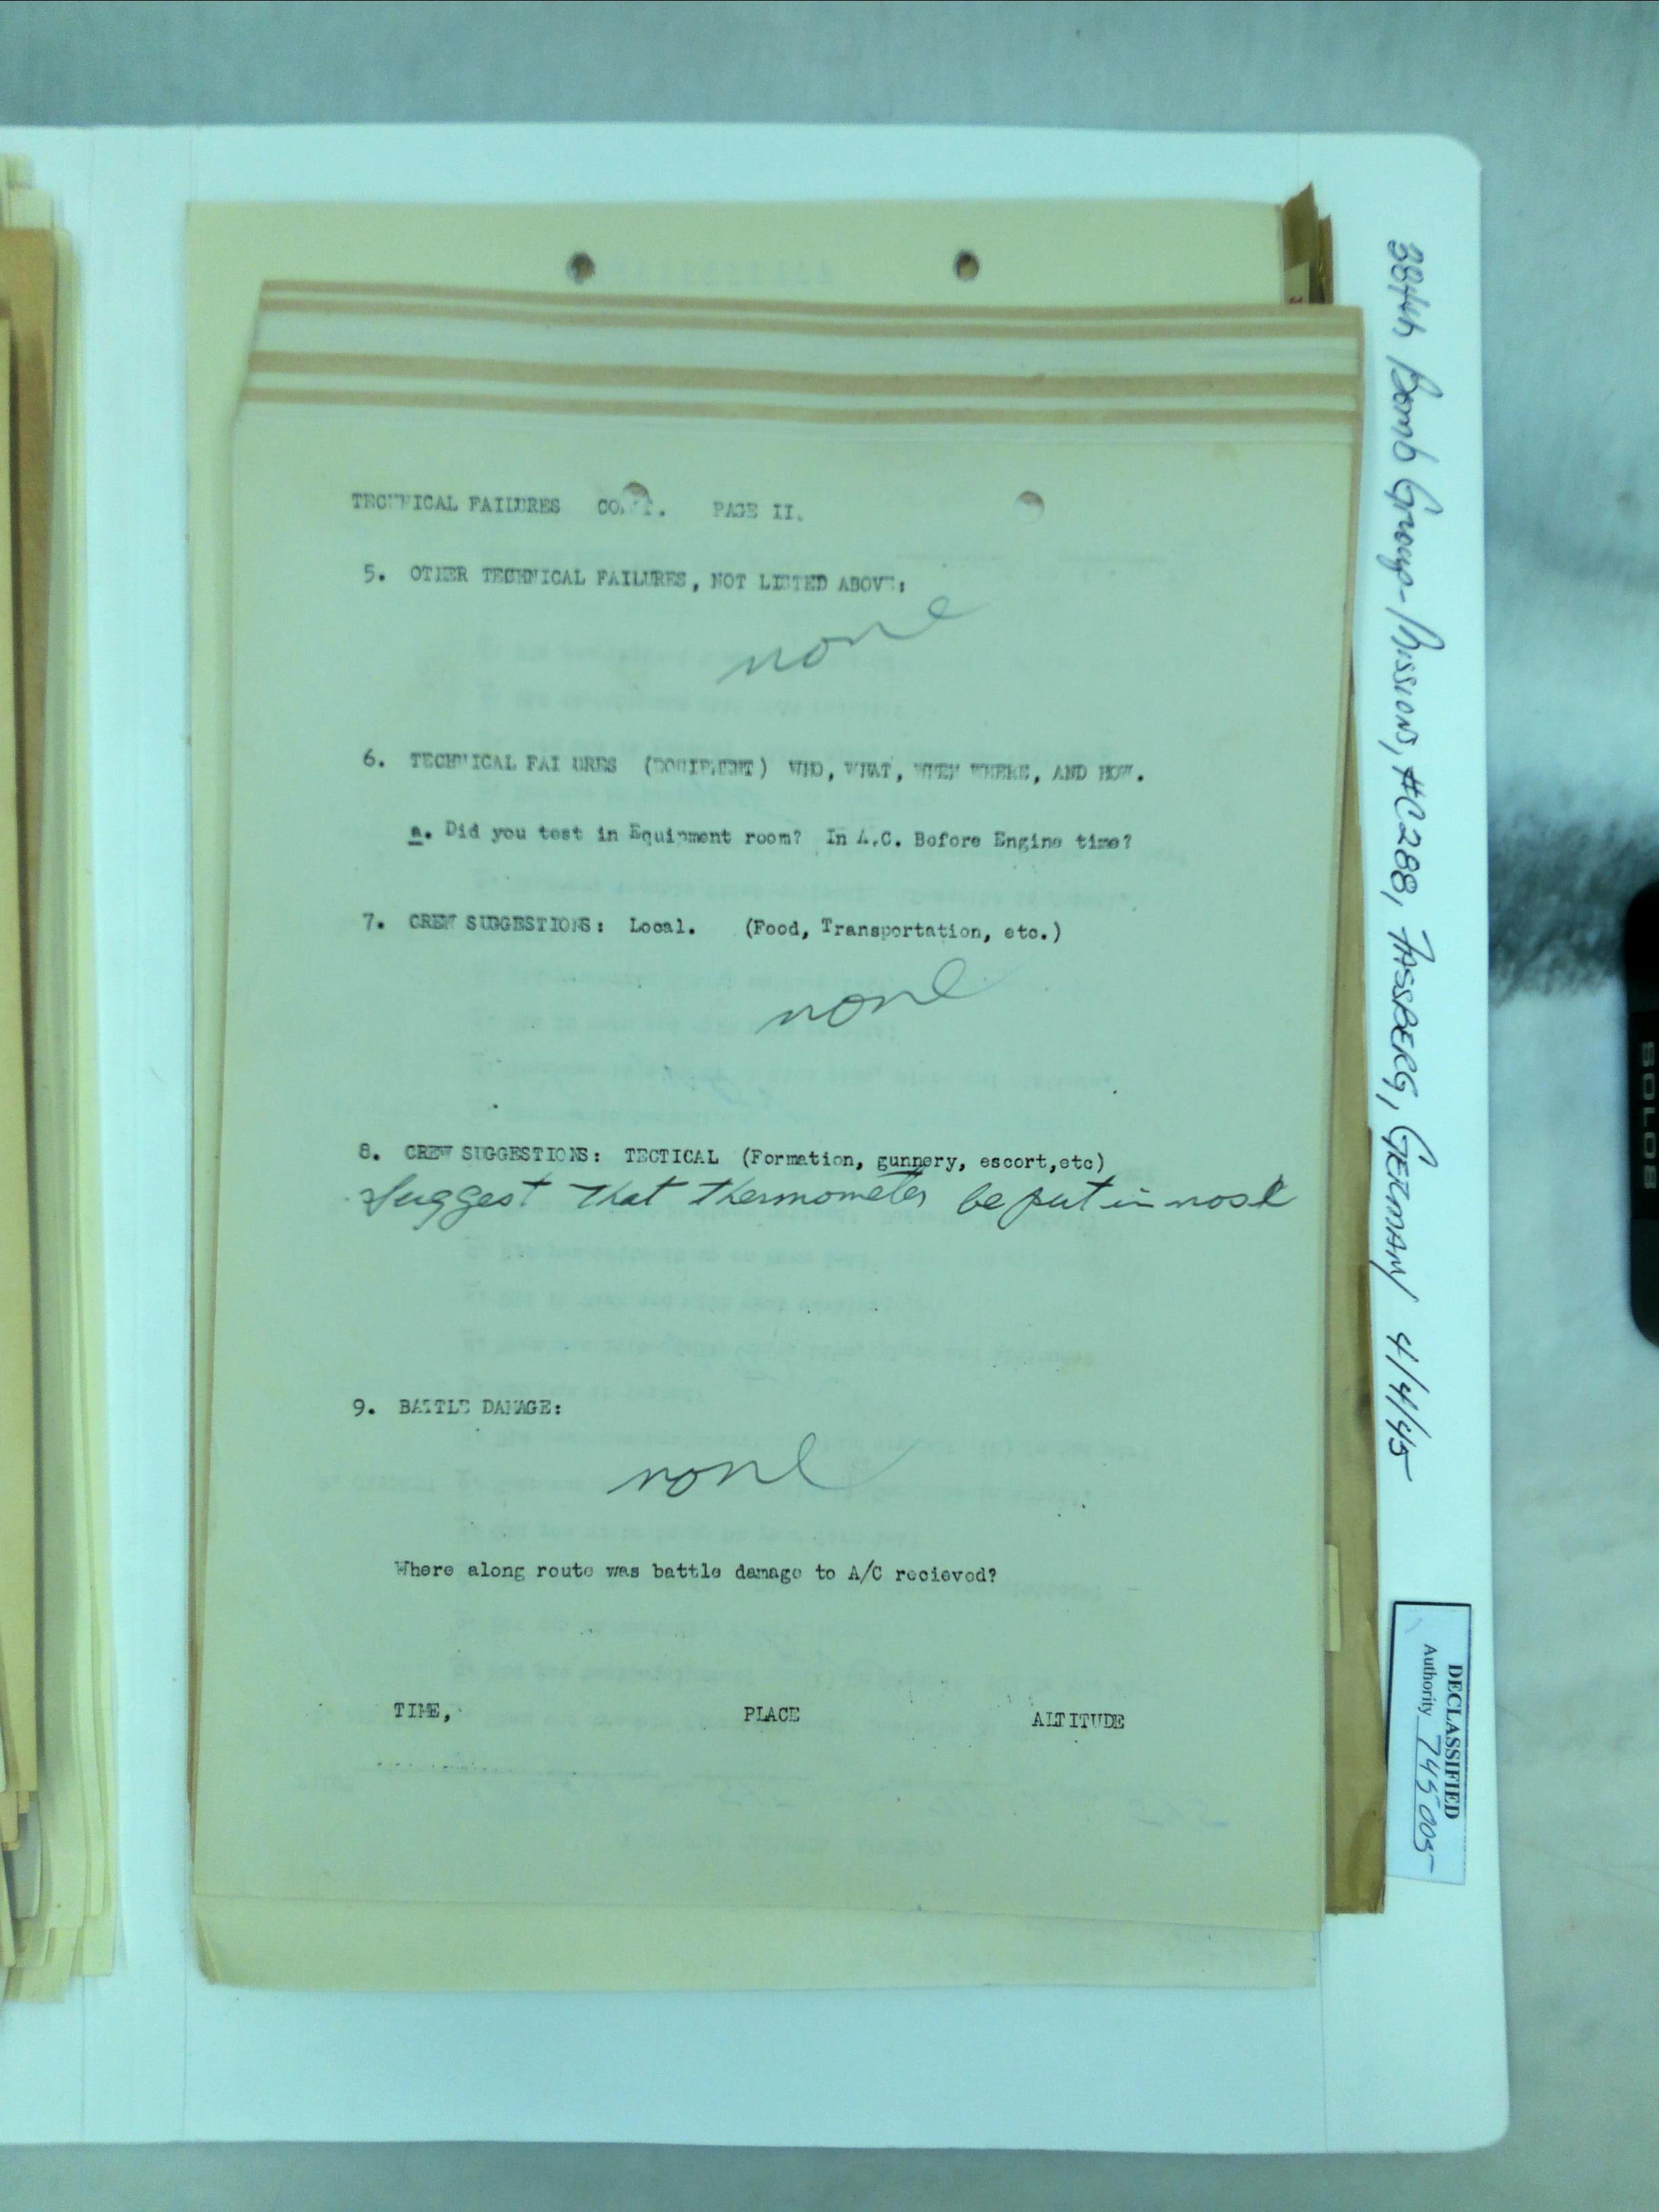 TECHNICAL FAILURES CONT. PAGE II.
5. OTHER TECHNICAL FAILURES, NOT LISTED ABOVE:
none
6. TECHNICAL FAI URES (EQUIPMENT) WHO, WHAT, WHEN WHERE, AND HOW.
a. Did you test in Equipment room? In A.C. Before Engine time?
7. CREW SUGGESTIONS: Local. (Food, Transportation, etc.)
none
8. CREW SUGGESTIONS: TECTICAL (Formation, gunnery, escort,etc)
Suggest that thermometer be put in nose
9. BATTLE DAMAGE:
none
Where along route was battle damage to A/C recieved?
TIME, PLACE ALTITUDE
384th Bomb Group-Mission, #C288, FASSBERG, GERMANY 4/4/45
DECLASSIFIED
Authority 745005
SOLO8